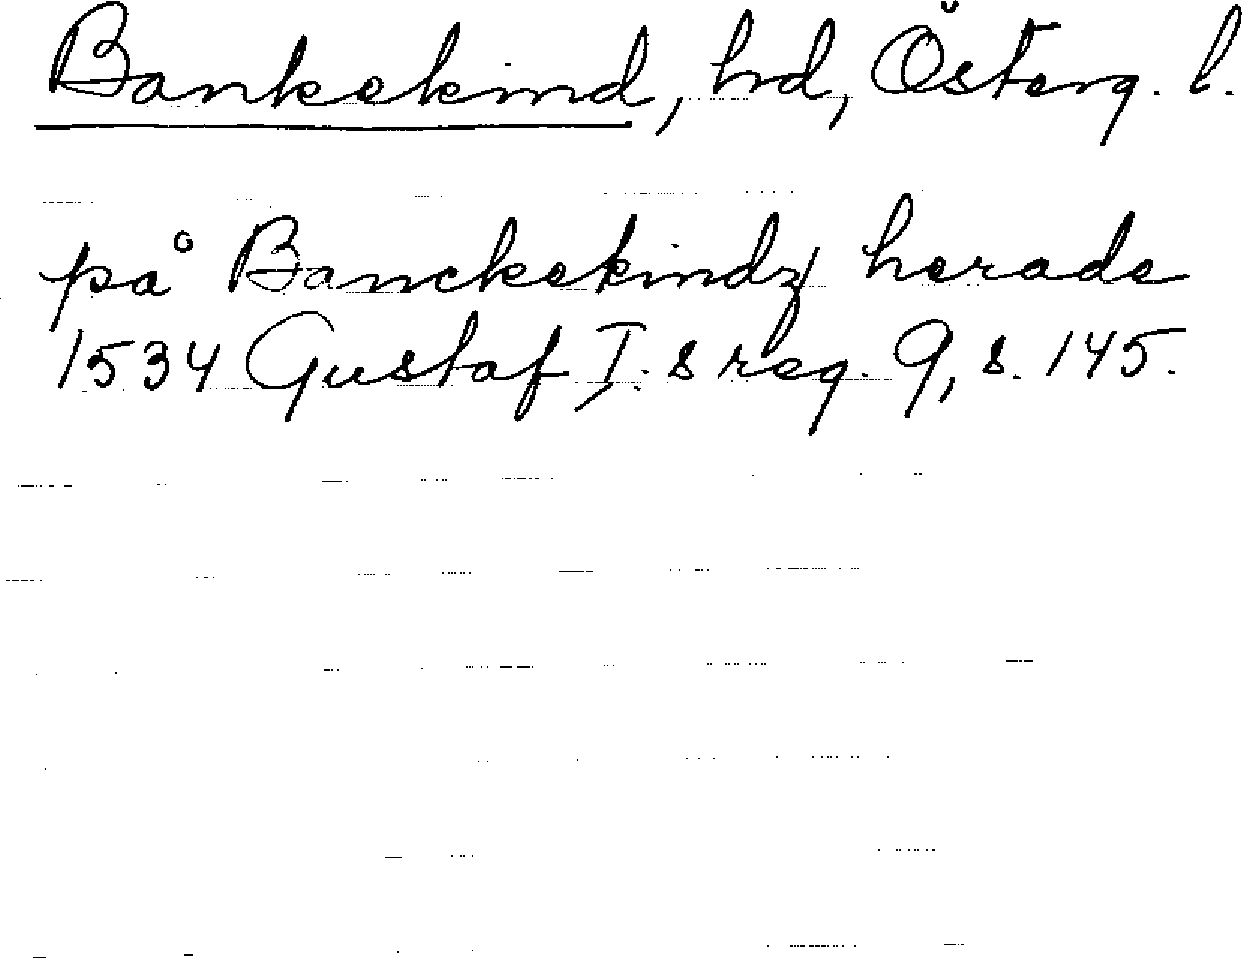 Bankekind, hd, Österg. l.
på Banckekindz herade
1534 Gustaf I. s reg. 9, s. 145.